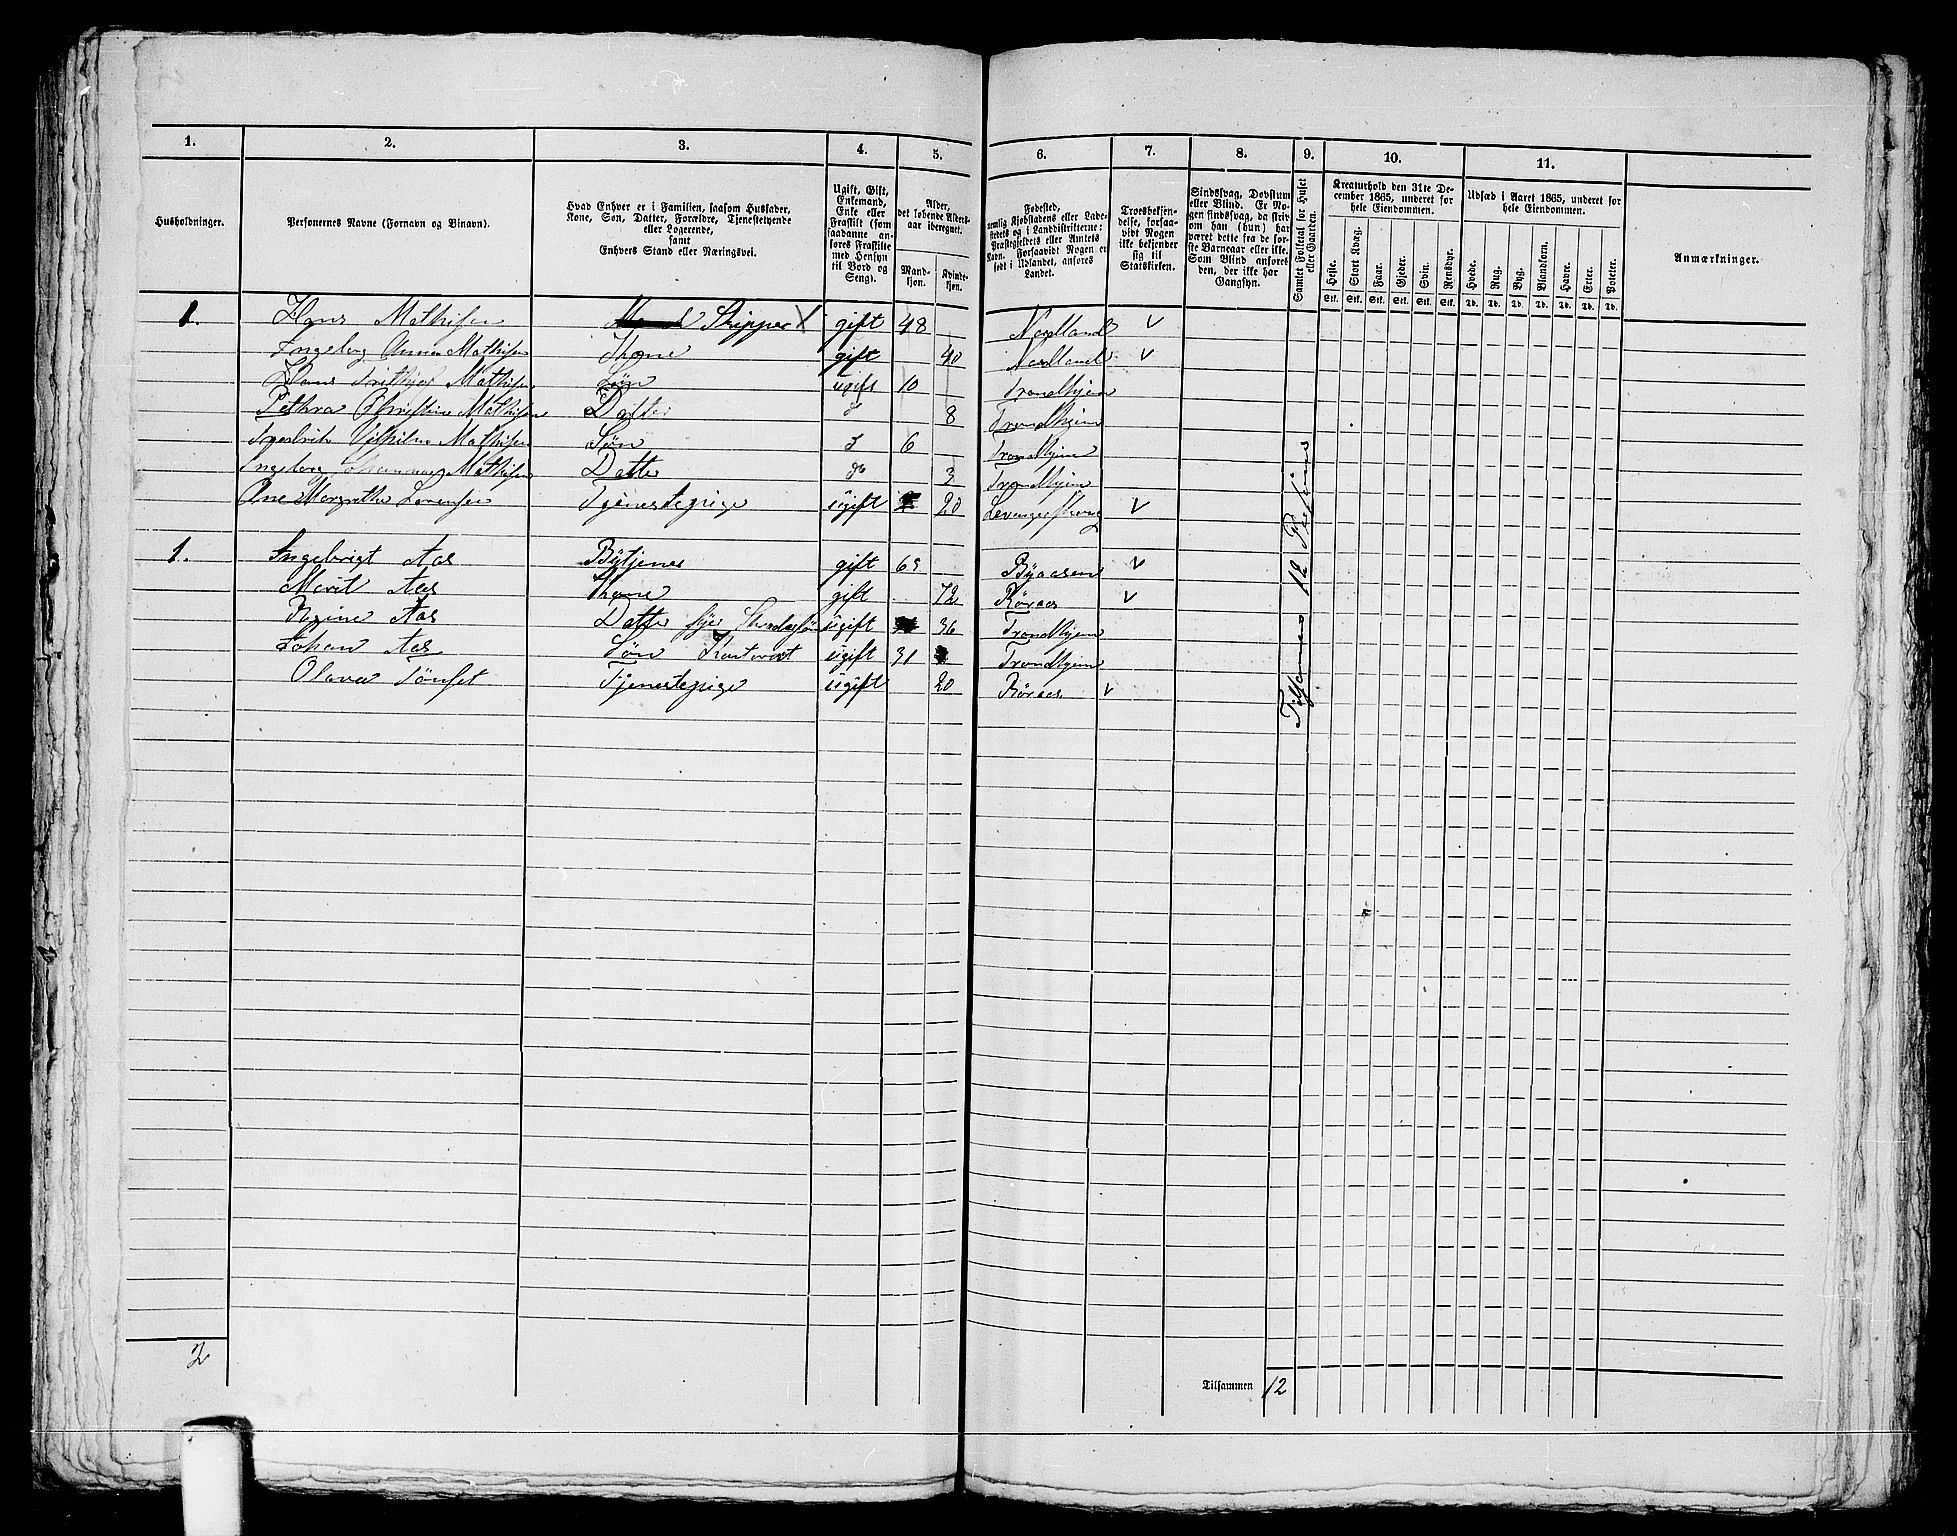 1. 2. 3. 4. 5. 6. 7. 8. 9. 10. 11.
Husholdninger.
Personernes Navne (Fornavn og Binavn).
Hvad Enhver er i Familien, saasom Husfader,
Kone, Søn, Datter, Forældre, Tjenestetyende
eller Logerende,
samt
Enhvers Stand eller Næringsvei.
Ugift, Gift,
Enkemand,
Enke eller
Fraskilt (som
saadanne an-
føres Fraskilte
med Hensyn
til Bord og
Seng).
Alder,
det løbende Alders-
aar iberegnet.
Mand-
kjøn.
Kvinde-
kjøn.
Fødested,
nemlig Kjøbstadens eller Lade-
stedets og i Landdistrikterne:
Præstegjeldets eller Amtets
Navn. Forsaavidt Nogen er
født i Udlandet, anføres
Landet.
Troesbekjen-
delse, forsaa-
vidt Nogen
ikke bekjender
sig til
Statskirken.
Sindssvag, Døvstum
eller Blind. Er No-
gen sindssvag, da skriv
om han (hun) har
været dette fra de før-
ste Barneaar eller ikke.
Som Blind anføres
den, der ikke har
Gangsyn.
Samlet Folketal for Huset
eller Gaarden.
Kreaturhold den 31te De-
cember 1865, underet for
hele Eiendommen.
Heste. Stort Kvæg. Faar. Gjeder. Svin. Rensdyr.
Stk. Stk. Stk. Stk. Stk. Stk.
Udsæd i Aaret 1865, underet for
hele Eiendommen.
Hvede. Rug. Byg. Blandkorn. Havre. Erter. Poteter.
Td. Td. Td. Td. Td. Td. Td.
Anmærkninger.
1. Hans Mathisen Skipper gift 48 Nordland
Ingeborg Anna Mathisen Khone gift 40 Nordland
Hans Frithjof Mathisen Søn ugift 10 Trondhjem
Pethra Christine Mathisen Datter 8 Trondhjem
Fredrik Vilhilm Mathisen Søn 6 Trondhjem
Ingeborg Johanna Mathisen Datter do 3 Trondhjem
Ane Margrethe Lorensen Tjenestepige ugift 20 Levanger
1. Ingebrigt Aas Bytjener gift 65 Byaasen
Marit Aas Khone gift 72 Röraas
Regine Aas Datter ugift 36 Trondhjem
Johan Aas Søn ugift 31 Trondhjem
Olava Tønset Tjenestepige ugift 20 Röraas
Tilsammen 12
2
Tilsammen 12